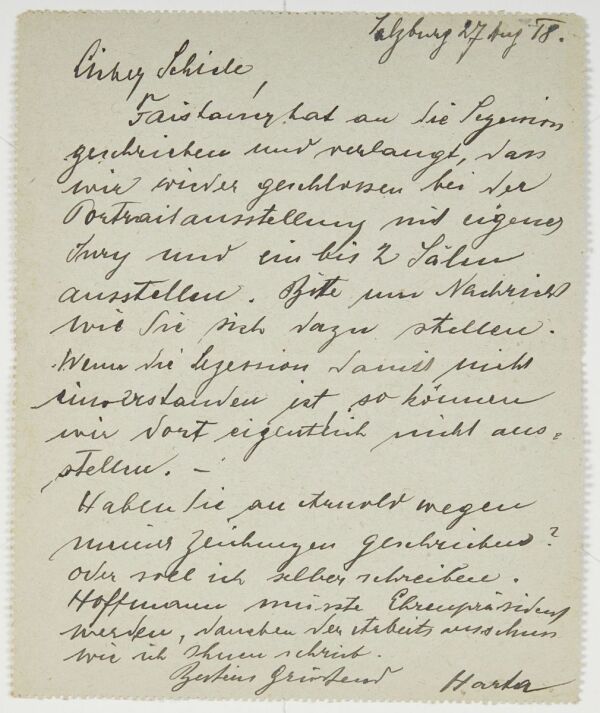 Salzburg 27 Aug 18.
Lieber Schiele,
Faistauer hat an die Sezession
geschrieben und verlangt, dass
wir wieder geschlossen bei der
Portraitausstellung mit eigener
Jury und ein bis 2 Sälen
ausstellen. Bitte um Nachricht
wie Sie sich dazu stellen.
Wenn die Sezession damit nicht
einverstanden ist, so können
wir dort eigentlich nicht aus=
stellen. –
Haben Sie an Arnold wegen
meiner Zeichnungen geschrieben?
oder soll ich selber schreiben.
Hoffmann müsste Ehrenpräsident
werden, daneben der Arbeitsausschuss
wie ich Ihnen schrieb.
Bestens Grüssend Harta